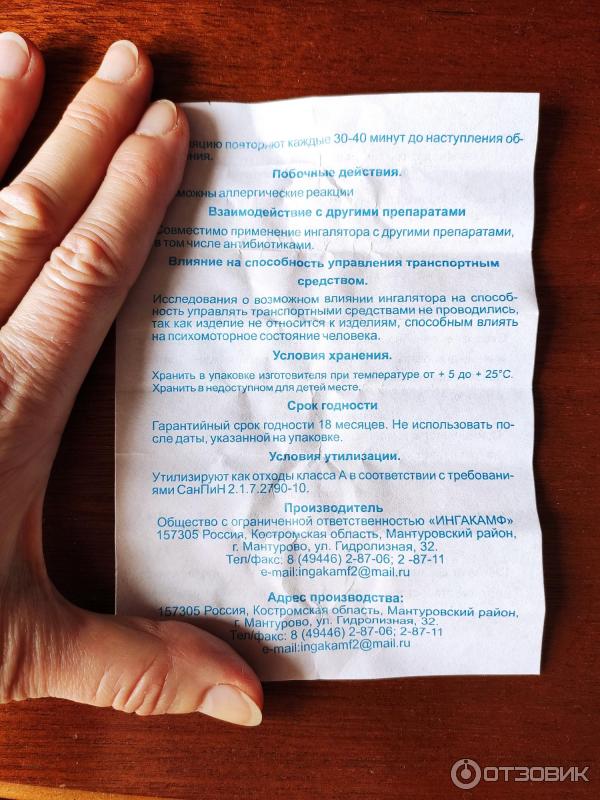 яцию повторяют каждые 30-40 минут до наступления об-
ния.
Побочные действия.
зможны аллергические реакции
Взаимодействие с другими препаратами
Совместимо применение ингалятора с другими препаратами,
в том числе антибиотиками.
Влияние на способность управления транспортным
средством.
Исследования о возможном влиянии ингалятора на способ-
ность управлять транспортными средствами не проводились,
так как изделие не относится к изделиям, способным влиять
на психомоторное состояние человека.
Условия хранения.
Хранить в упаковке изготовителя при температуре от + 5 до + 25°С.
Хранить в недоступном для детей месте.
Срок годности
Гарантийный срок годности 18 месяцев. Не использовать по-
сле даты, указанной на упаковке.
Условия утилизации.
Утилизируют как отходы класса А в соответствии с требовани-
ями СанПиН 2.1.7.2790-10.
Производитель
Общество с ограниченной ответственностью «ИНГАКАМФ»
157305 Россия, Костромская область, Мантуровский район,
г. Мантурово, ул. Гидролизная, 32.
Тел/факс: 8 (49446) 2-87-06; 2 -87-11
e-mail:ingakamf2@mail.ru
Адрес производства:
157305 Россия, Костромская область, Мантуровский район,
г. Мантурово, ул. Гидролизная, 32.
Тел/факс: 8 (49446) 2-87-06; 2-87-11
e-mail:ingakamf2@mail.ru
ОТЗОВИК